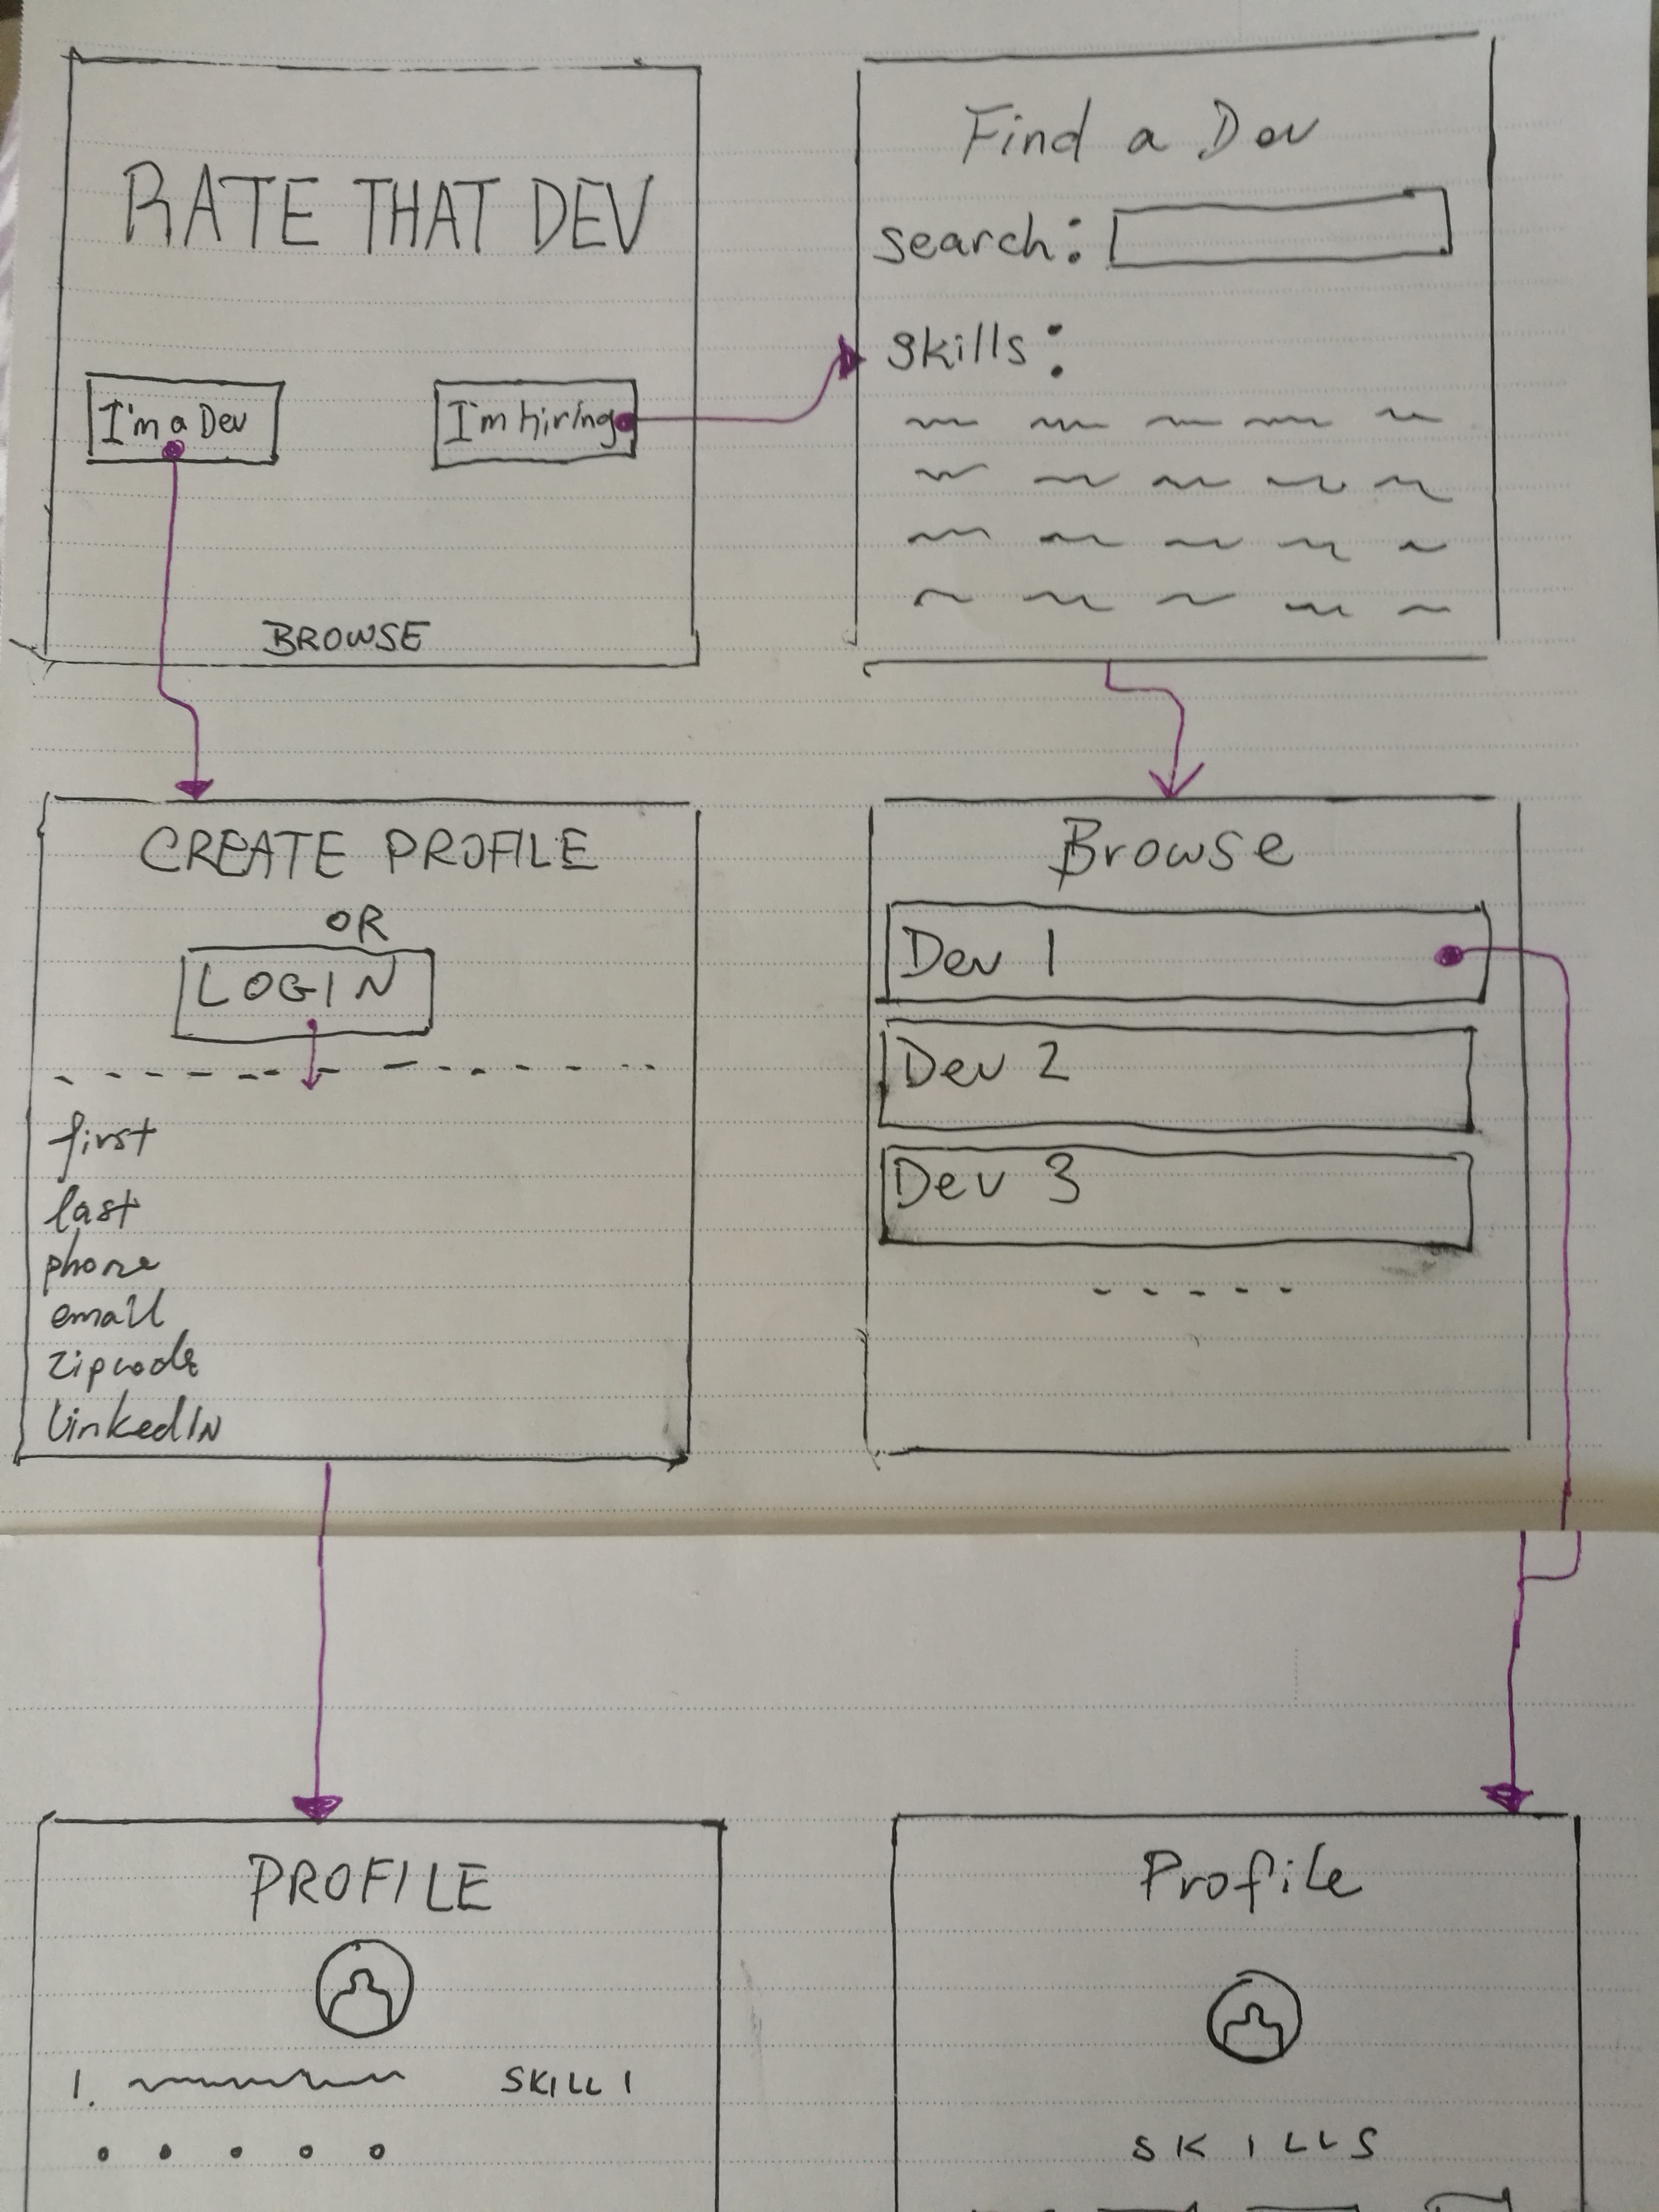 RATE THAT DEV
I'm a Dev
I'm hiring
BROWSE
Find a Dev
search:
skills:
CREATE PROFILE
OR
LOGIN
first
last
phone
email
zipcode
LinkedIN
Browse
Dev 1
Dev 2
Dev 3
PROFILE
1. SKILL 1
Profile
SKILLS